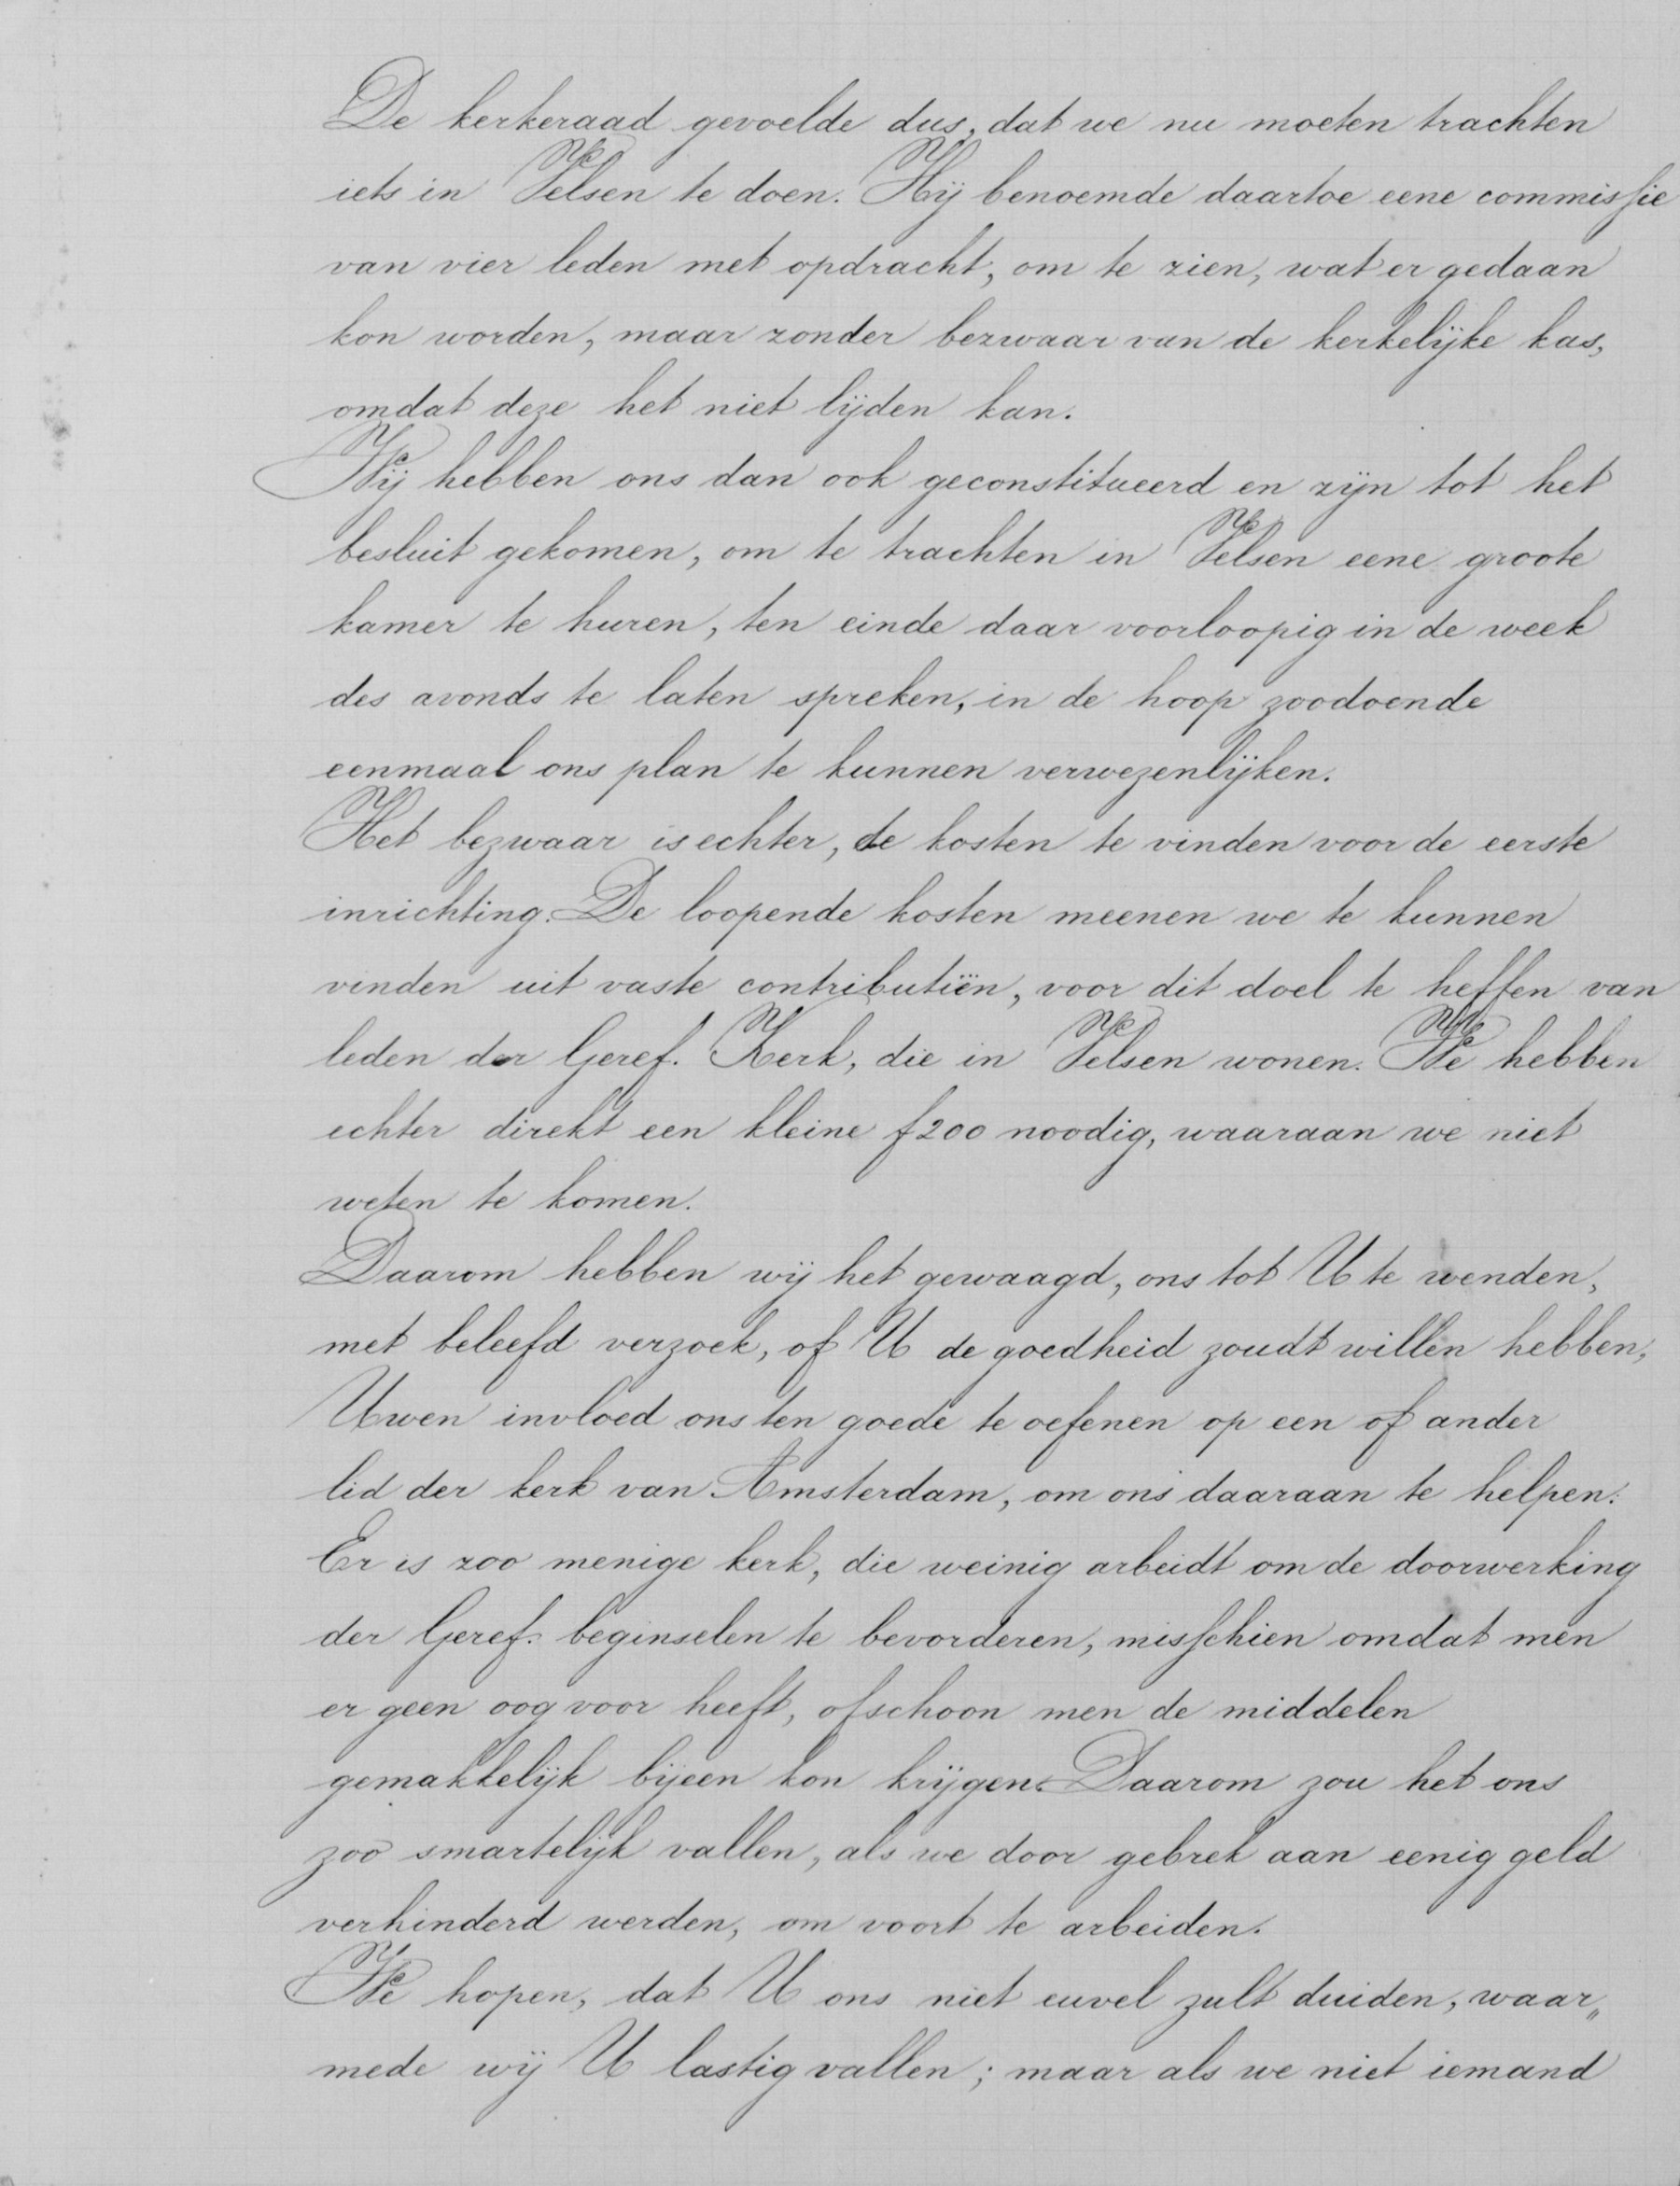 De kerkeraad gevoelde dus, dat we nu moeten trachten
iets in Velsen te doen. Hij benoemde daartoe eene commissie
van vier leden met opdracht, om te zien, wat er gedaan
kon worden, maar zonder bezwaar van de kerkelijke kas,
omdat deze het niet lijden kan.
Wij hebben ons dan ook geconstitueerd en zijn tot het
besluit gekomen, om te trachten in Velsen eene groote
kamer te huren, ten einde daar voorloopig in de week
des avonds te laten spreken, in de hoop zoodoende
eenmaal ons plan te kunnen verwezenlijken.
Het bezwaar is echter, de kosten te vinden voor de eerste
inrichting. De loopende kosten meenen we te kunnen
vinden uit vaste contributiën, voor dit doel te heffen van
leden der Geref. Kerk, die in Velsen wonen. We hebben
echter direkt een kleine f 200 noodig, waaraan we niet
weten te komen.
Daarom hebben wij het gewaagd, ons tot U te wenden,
met beleefd verzoek, of U de goedheid zoudt willen hebben,
Uwen invloed ons ten goede te oefenen op een of ander
lid der kerk van Amsterdam, om ons daaraan te helpen.
Er is zoo menige kerk, die weinig arbeidt om de doorwerking
der Geref. beginselen te bevorderen, misschien omdat men
er geen oog voor heeft, ofschoon men de middelen
gemakkelijk bijeen kon krijgen. Daarom zou het ons
zoo smartelijk vallen, als we door gebrek aan eenig geld
verhinderd werden, om voort te arbeiden.
We hopen, dat U ons niet euvel zult duiden, waar„
mede wij U lastig vallen; maar als we niet iemand